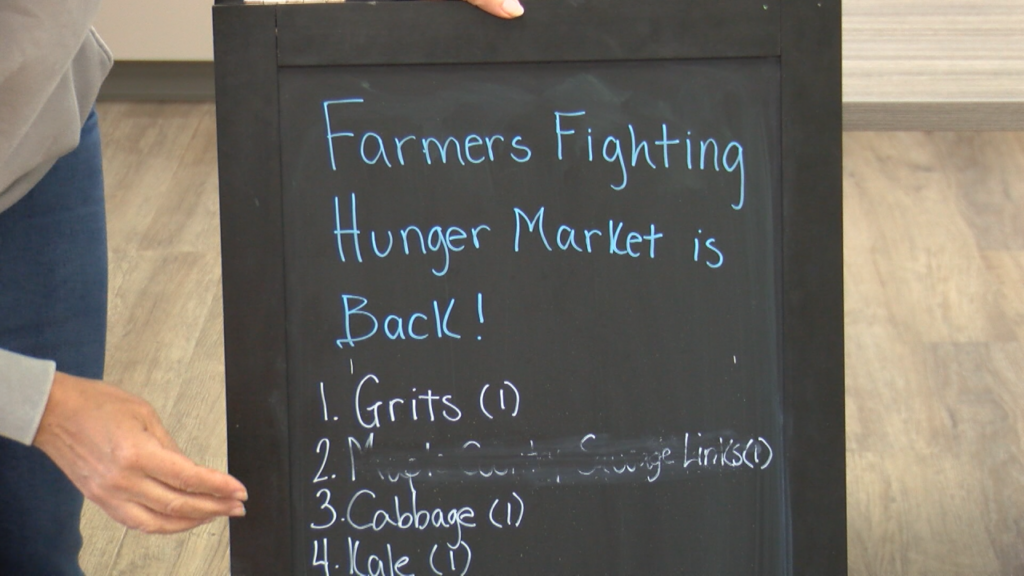 Farmers Fighting
Hunger Market is
Back!
1. Grits (1)
2. Links(1)
3. Cabbage (1)
4. Kale (1)